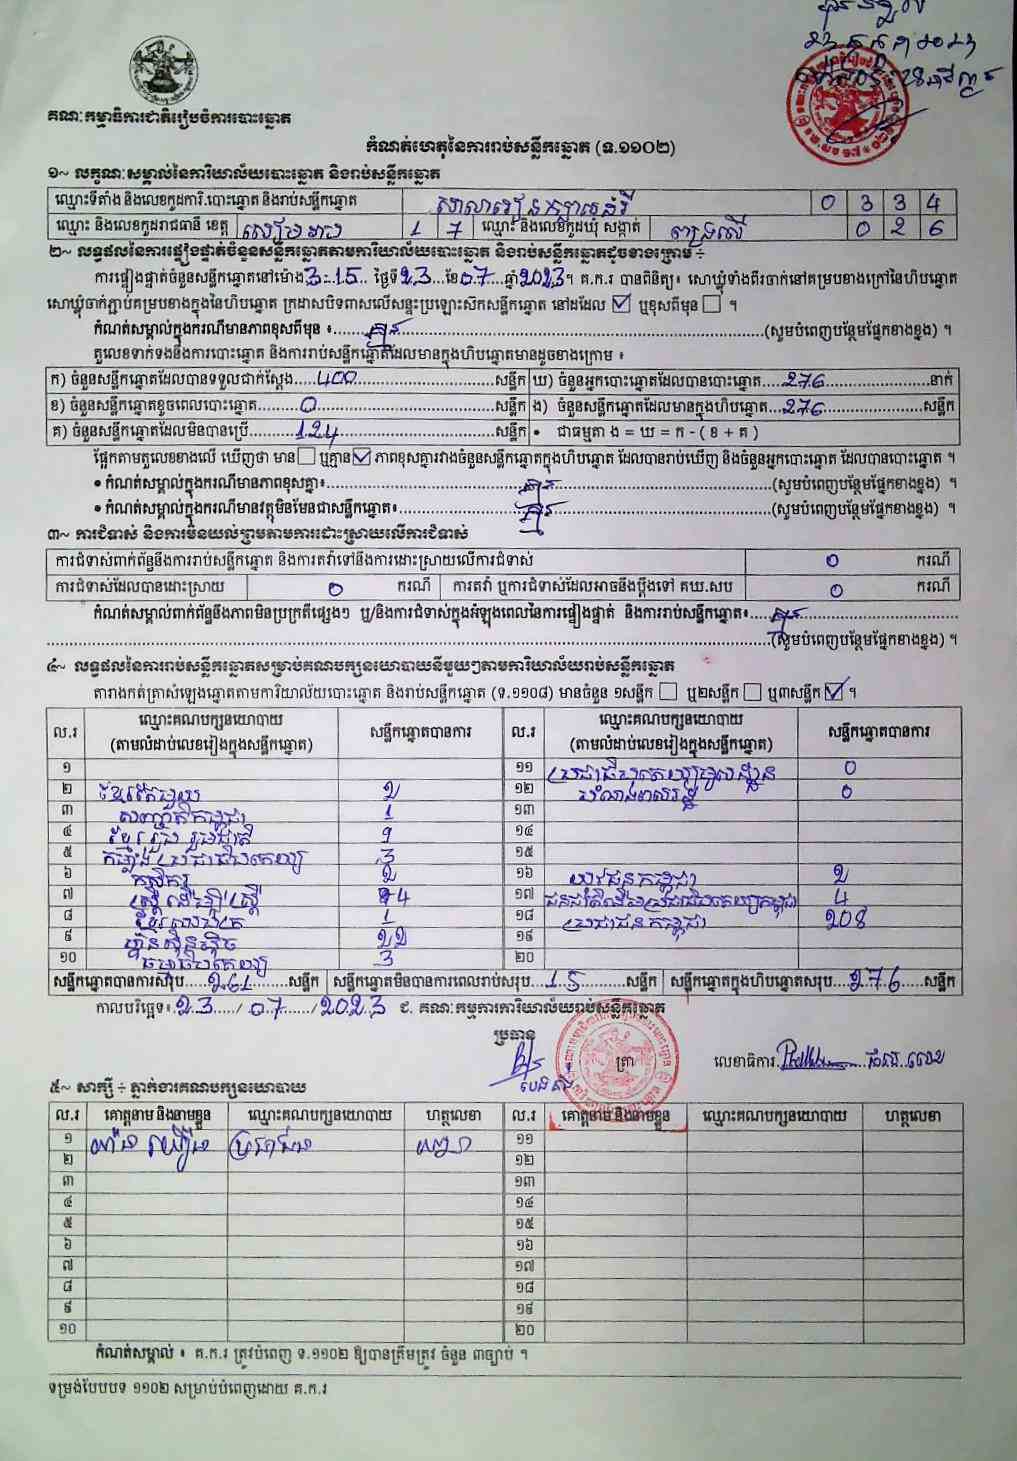 គណៈកម្មាធិការជាតិរៀបចំការបោះឆ្នោត
កំណត់ហេតុនៃការរាប់សន្លឹកឆ្នោត (ទ.១១០២)
១~ លក្ខណៈសម្គាល់នៃការិយាល័យបោះឆ្នោត និងរាប់សន្លឹកឆ្នោត
ឈ្មោះទីតាំង និងលេខកូដការិ.បោះឆ្នោត និងរាប់សន្លឹកឆ្នោត សាលារៀន 0 3 3 4
ឈ្មោះ និងលេខកូដរាជធានី ខេត្ត សៀមរាប 1 7 ឈ្មោះ និងលេខកូដឃុំ សង្កាត់ 0 2 6
២~ លទ្ធផលនៃការផ្ទៀងផ្ទាត់ចំនួនសន្លឹកឆ្នោតតាមការិយាល័យបោះឆ្នោត និងរាប់សន្លឹកឆ្នោតដូចខាងក្រោម ÷
ការផ្ទៀងផ្ទាត់ចំនួនសន្លឹកឆ្នោតនៅម៉ោង 3:15 ថ្ងៃទី 23 ខែ 07 ឆ្នាំ 2023 ។ គ.ក.រ បានពិនិត្យ៖ សោឃ្លុំទាំងពីរចាក់នៅគម្របខាងក្រៅនៃហិបឆ្នោត
សោឃ្លុំចាក់ភ្ជាប់គម្របខាងក្នុងនៃហិបឆ្នោត ក្រដាសបិទពាសលើសន្ទះប្រឡោះសឹកសន្លឹកឆ្នោត នៅដដែល ☑ ឬខុសពីមុន ☐ ។
កំណត់សម្គាល់ក្នុងករណីមានភាពខុសពីមុន ៖ គ្មាន (សូមបំពេញបន្ថែមផ្នែកខាងខ្នង) ។
តួលេខទាក់ទងនឹងការបោះឆ្នោត និងការរាប់សន្លឹកឆ្នោតដែលមានក្នុងហិបឆ្នោតមានដូចខាងក្រោម ៖
ក) ចំនួនសន្លឹកឆ្នោតដែលបានទទួលជាក់ស្តែង 400 សន្លឹក ឃ) ចំនួនអ្នកបោះឆ្នោតដែលបានបោះឆ្នោត 276 នាក់
ខ) ចំនួនសន្លឹកឆ្នោតខូចពេលបោះឆ្នោត 0 សន្លឹក ង) ចំនួនសន្លឹកឆ្នោតដែលមានក្នុងហិបឆ្នោត 276 សន្លឹក
គ) ចំនួនសន្លឹកឆ្នោតដែលមិនបានប្រើ 124 សន្លឹក • ជាធម្មតា ង = ឃ = ក - ( ខ + គ )
ផ្អែកតាមតួលេខខាងលើ ឃើញថា មាន ☐ ឬគ្មាន ☑ ភាពខុសគ្នារវាងចំនួនសន្លឹកឆ្នោតក្នុងហិបឆ្នោត ដែលបានរាប់ឃើញ និងចំនួនអ្នកបោះឆ្នោត ដែលបានបោះឆ្នោត ។
• កំណត់សម្គាល់ក្នុងករណីមានភាពខុសគ្នា៖ គ្មាន (សូមបំពេញបន្ថែមផ្នែកខាងខ្នង) ។
• កំណត់សម្គាល់ក្នុងករណីមានវត្ថុមិនមែនជាសន្លឹកឆ្នោត៖ គ្មាន (សូមបំពេញបន្ថែមផ្នែកខាងខ្នង) ។
៣~ ការជំទាស់ និងការមិនយល់ព្រមតាមការដោះស្រាយលើការជំទាស់
ការជំទាស់ពាក់ព័ន្ធនឹងការរាប់សន្លឹកឆ្នោត និងការតវ៉ាទៅនឹងការដោះស្រាយលើការជំទាស់ 0 ករណី
ការជំទាស់ដែលបានដោះស្រាយ 0 ករណី ការតវ៉ា ឬការជំទាស់ដែលអាចនឹងប្តឹងទៅ គឃ.សប 0 ករណី
កំណត់សម្គាល់ពាក់ព័ន្ធនឹងភាពមិនប្រក្រតីផ្សេងៗ ឬ/និងការជំទាស់ក្នុងអំឡុងពេលនៃការផ្ទៀងផ្ទាត់ និងការរាប់សន្លឹកឆ្នោត៖ គ្មាន
(សូមបំពេញបន្ថែមផ្នែកខាងខ្នង) ។
៤~ លទ្ធផលនៃការរាប់សន្លឹកឆ្នោតសម្រាប់គណបក្សនយោបាយនីមួយៗតាមការិយាល័យរាប់សន្លឹកឆ្នោត
តារាងកត់ត្រាសំឡេងឆ្នោតតាមការិយាល័យបោះឆ្នោត និងរាប់សន្លឹកឆ្នោត (ទ.១១០៨) មានចំនួន ១សន្លឹក ☐ ឬ២សន្លឹក ☐ ឬ៣សន្លឹក ☑ ។
ល.រ ឈ្មោះគណបក្សនយោបាយ (តាមលំដាប់លេខរៀងក្នុងសន្លឹកឆ្នោត) សន្លឹកឆ្នោតបានការ ល.រ ឈ្មោះគណបក្សនយោបាយ (តាមលំដាប់លេខរៀងក្នុងសន្លឹកឆ្នោត) សន្លឹកឆ្នោតបានការ
១ ១១ ប្រជាធិបតេយ្យមូលដ្ឋាន 0
២ ខ្មែរតែមួយ 2 ១២ 0
៣ សញ្ជាតិកម្ពុជា 1 ១៣
៤ ខ្មែររួបរួមជាតិ 9 ១៤
៥ កម្លាំងប្រជាធិបតេយ្យ 3 ១៥
៦ កសិករ 2 ១៦ យុវជនកម្ពុជា 2
៧ ស្ត្រីដើម្បីស្ត្រី 4 ១៧ ជនជាតិដើមប្រជាធិបតេយ្យកម្ពុជា 4
៨ 1 ១៨ ប្រជាជនកម្ពុជា 208
៩ ហ៊្វុនស៊ិនប៉ិច 22 ១៩
១០ ធម្មាធិបតេយ្យ 3 ២០
សន្លឹកឆ្នោតបានការសរុប 261 សន្លឹក សន្លឹកឆ្នោតមិនបានការពេលរាប់សរុប 15 សន្លឹក សន្លឹកឆ្នោតក្នុងហិបឆ្នោតសរុប 276 សន្លឹក
កាលបរិច្ឆេទ៖ 23 / 07 / 2023 ជ. គណៈកម្មការការិយាល័យរាប់សន្លឹកឆ្នោត
ប្រធាន
ត្រា លេខាធិការ
៥~ សាក្សី ÷ ភ្នាក់ងារគណបក្សនយោបាយ
ល.រ គោត្តនាម និងនាមខ្លួន ឈ្មោះគណបក្សនយោបាយ ហត្ថលេខា ល.រ គោត្តនាម និងនាមខ្លួន ឈ្មោះគណបក្សនយោបាយ ហត្ថលេខា
១ ប្រជាជន ១១
២ ១២
៣ ១៣
៤ ១៤
៥ ១៥
៦ ១៦
៧ ១៧
៨ ១៨
៩ ១៩
១០ ២០
កំណត់សម្គាល់ ៖ គ.ក.រ ត្រូវបំពេញ ទ.១១០២ ឱ្យបានត្រឹមត្រូវ ចំនួន ៣ច្បាប់ ។
ទម្រង់បែបបទ ១១០២ សម្រាប់បំពេញដោយ គ.ក.រ